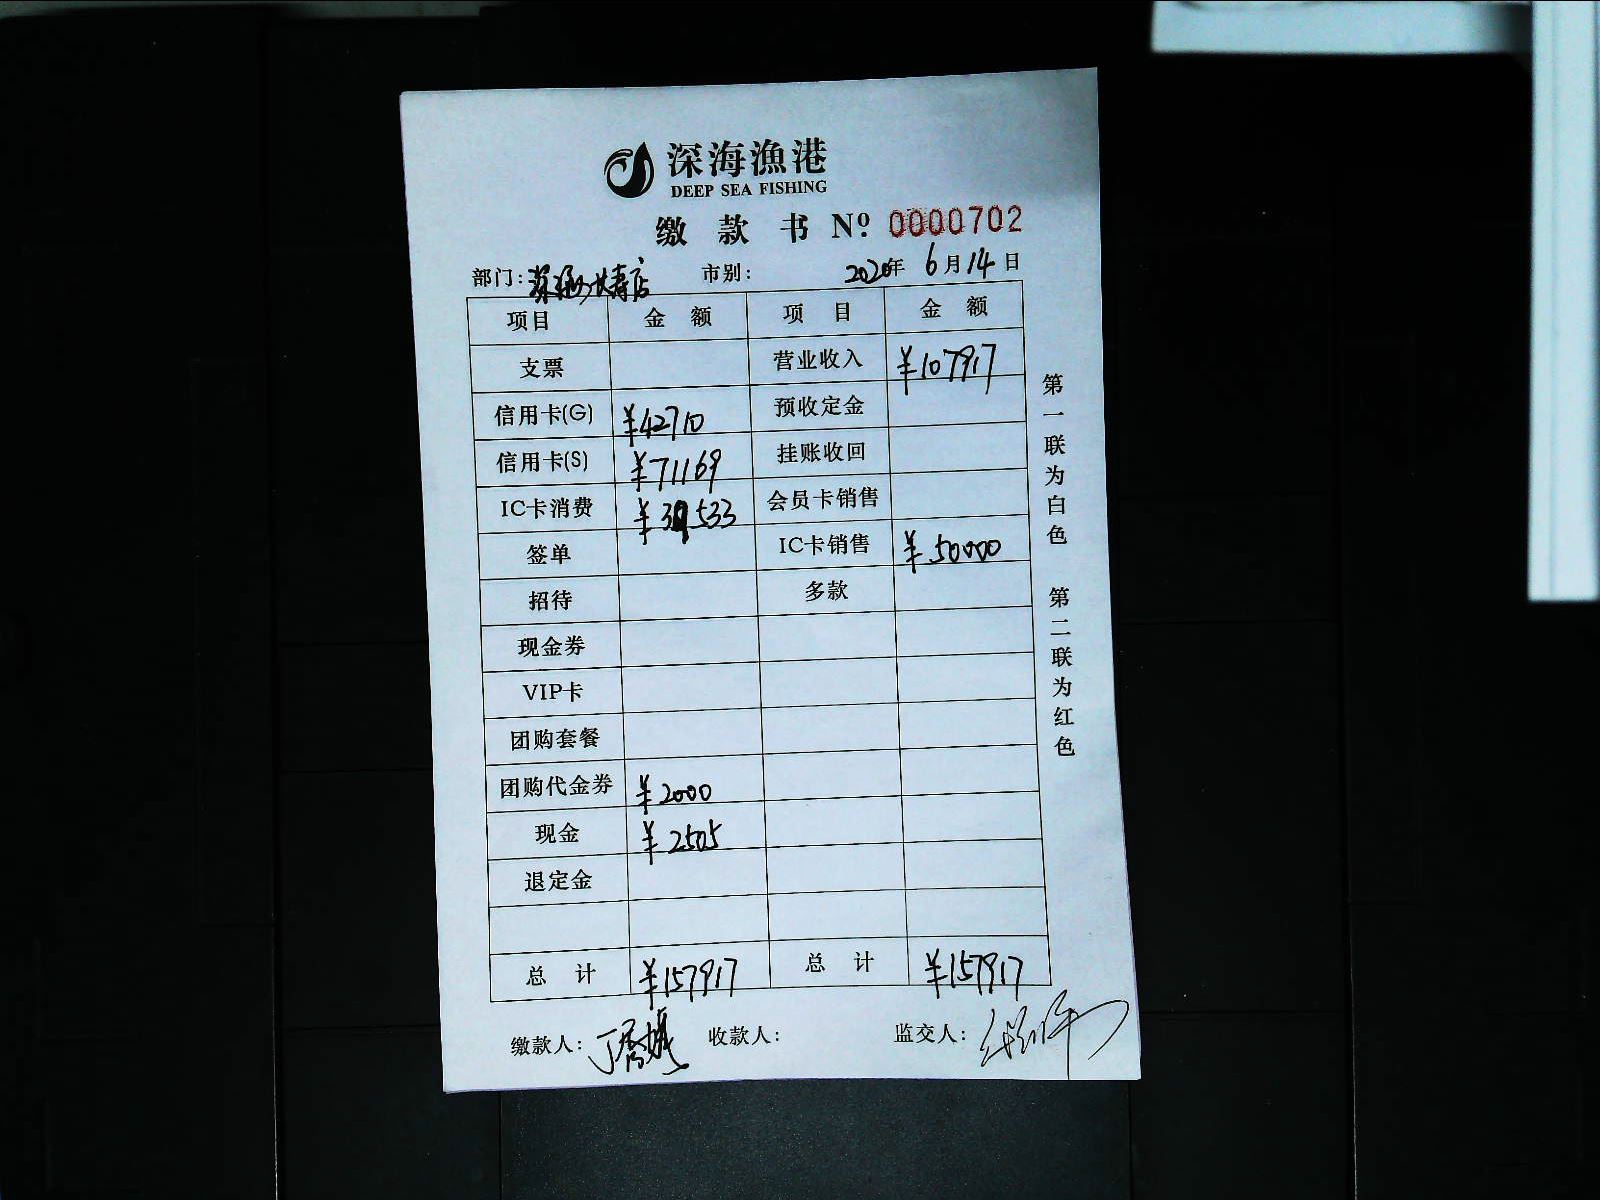 深海漁港
DEEP SEA FISHING
缴款书 Nº 0000702
部门: 长寿店 市别: 2020年 6月14日
项目 金额 项目 金额
支票 营业收入 ¥107917
信用卡(G) ¥42710 预收定金
信用卡(S) ¥71169 挂账收回
IC卡消费 ¥39533 会员卡销售
签单 IC卡销售 ¥50000
招待 多款
现金券
VIP卡
团购套餐
团购代金券 ¥2000
现金 ¥2505
退定金
总计 ¥157917 总计 ¥157917
缴款人: 收款人: 监交人:
第一联为白色 第二联为红色